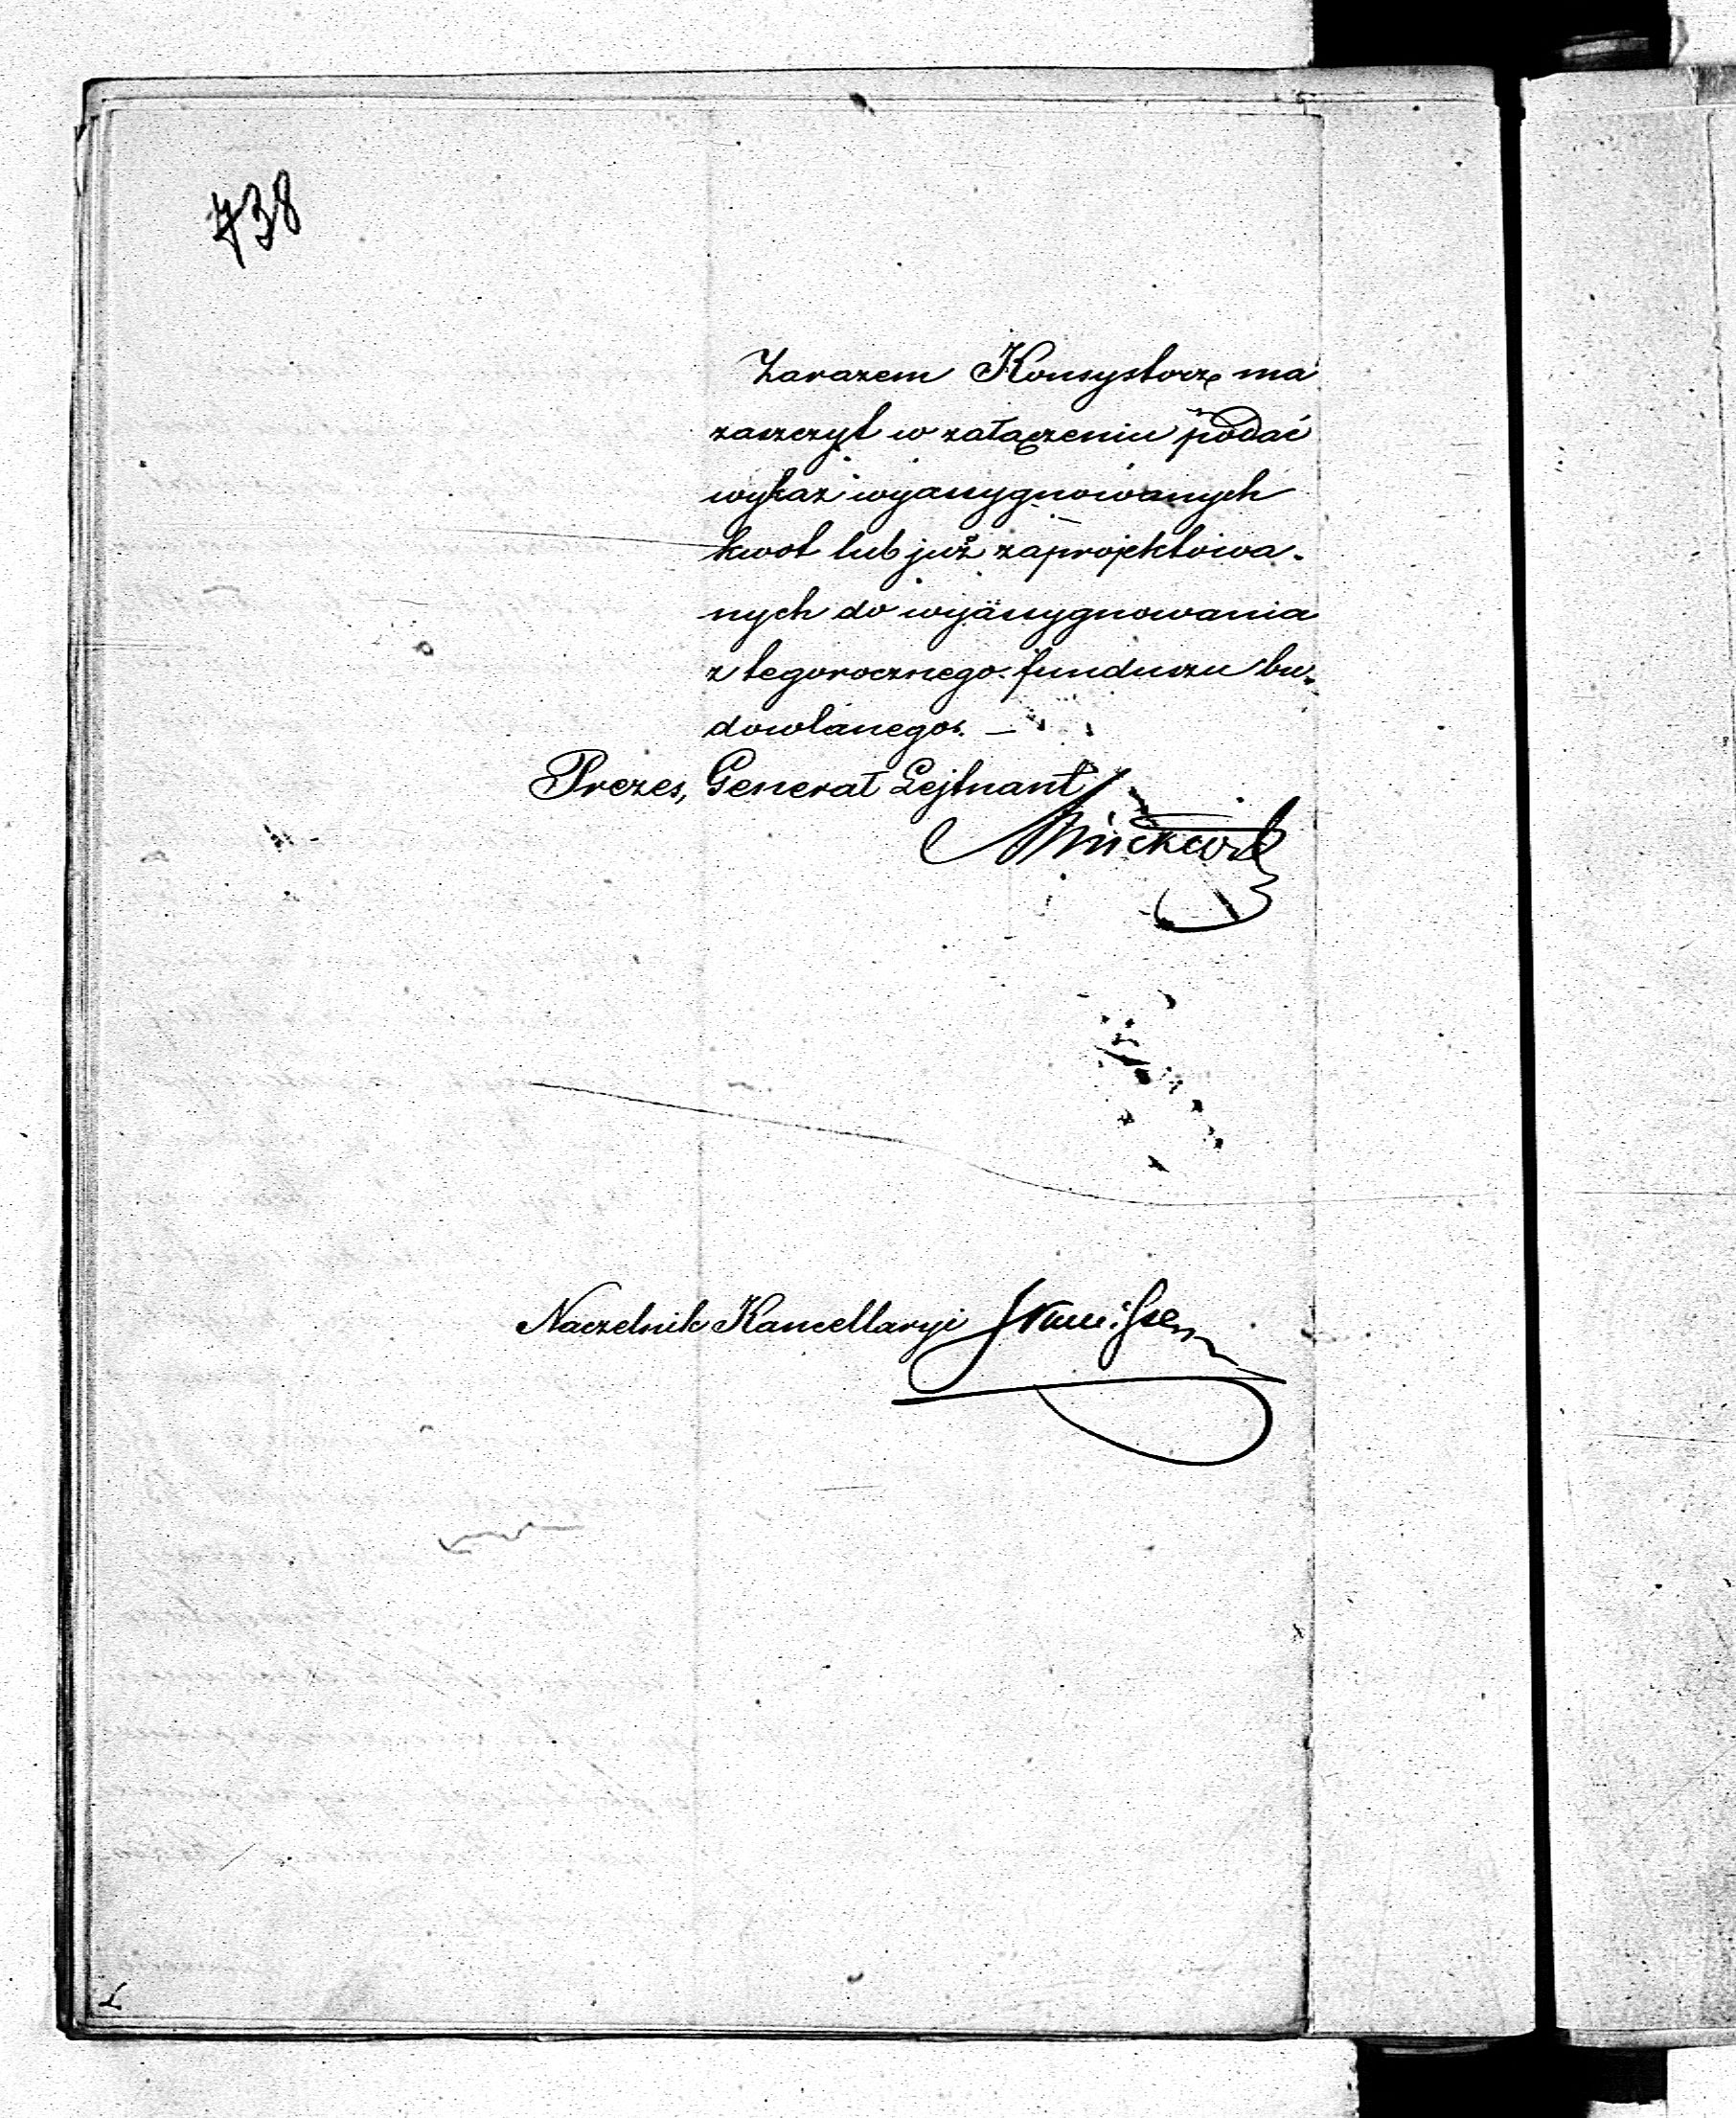 738
Zarazem Konsystorz ma
zaszczyt w załączeniu podać
wykaz wyassygnowanych
kwot lub już zaprojektowa-
nych do wyassygnowania
z tegorocznego funduszu bu-
dowlanego. —
Prezes, Generał Lejtnant
Naczelnik Kancellaryi